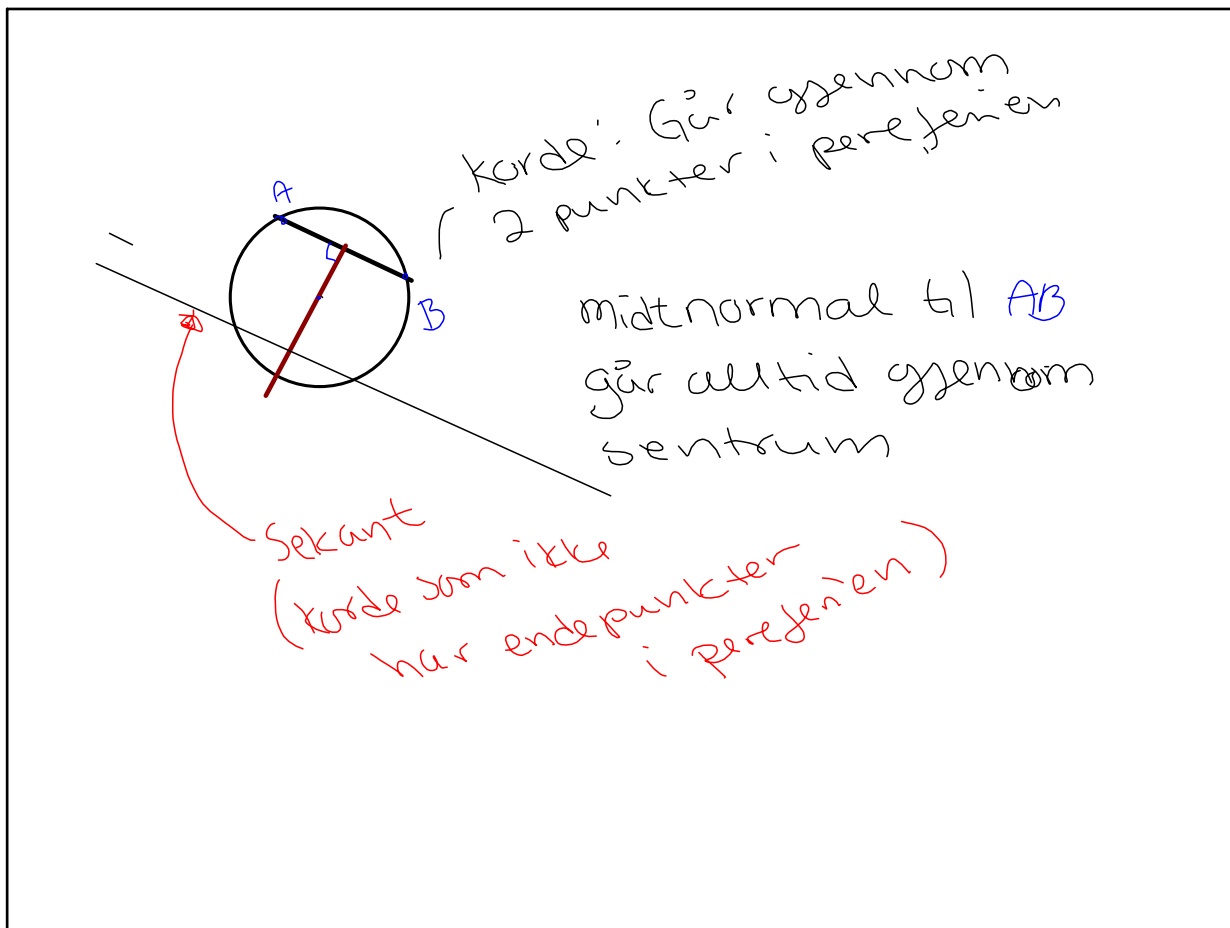 A
B
korde: Går gjennom
2 punkter i pereferien
midtnormal til AB
går alltid gjennom
sentrum
Sekant
(korde som ikke
har endepunkter
i pereferien)